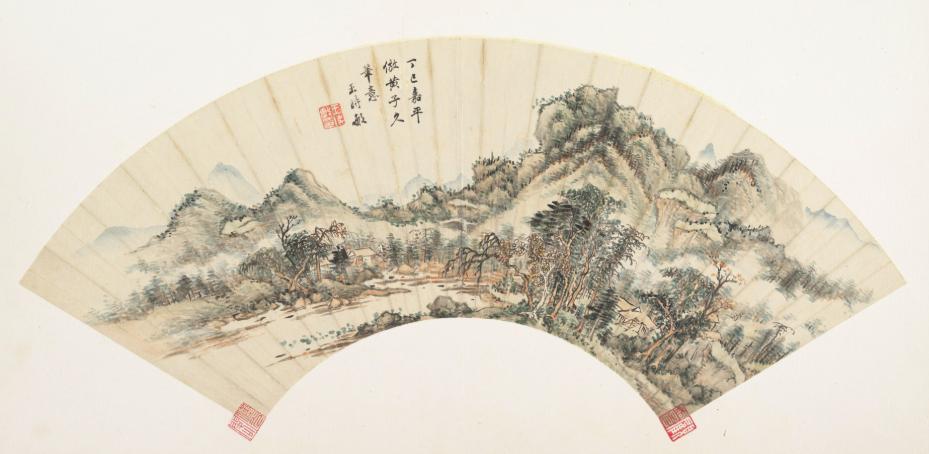 丁巳嘉平
倣黃子久
筆意
王時敏